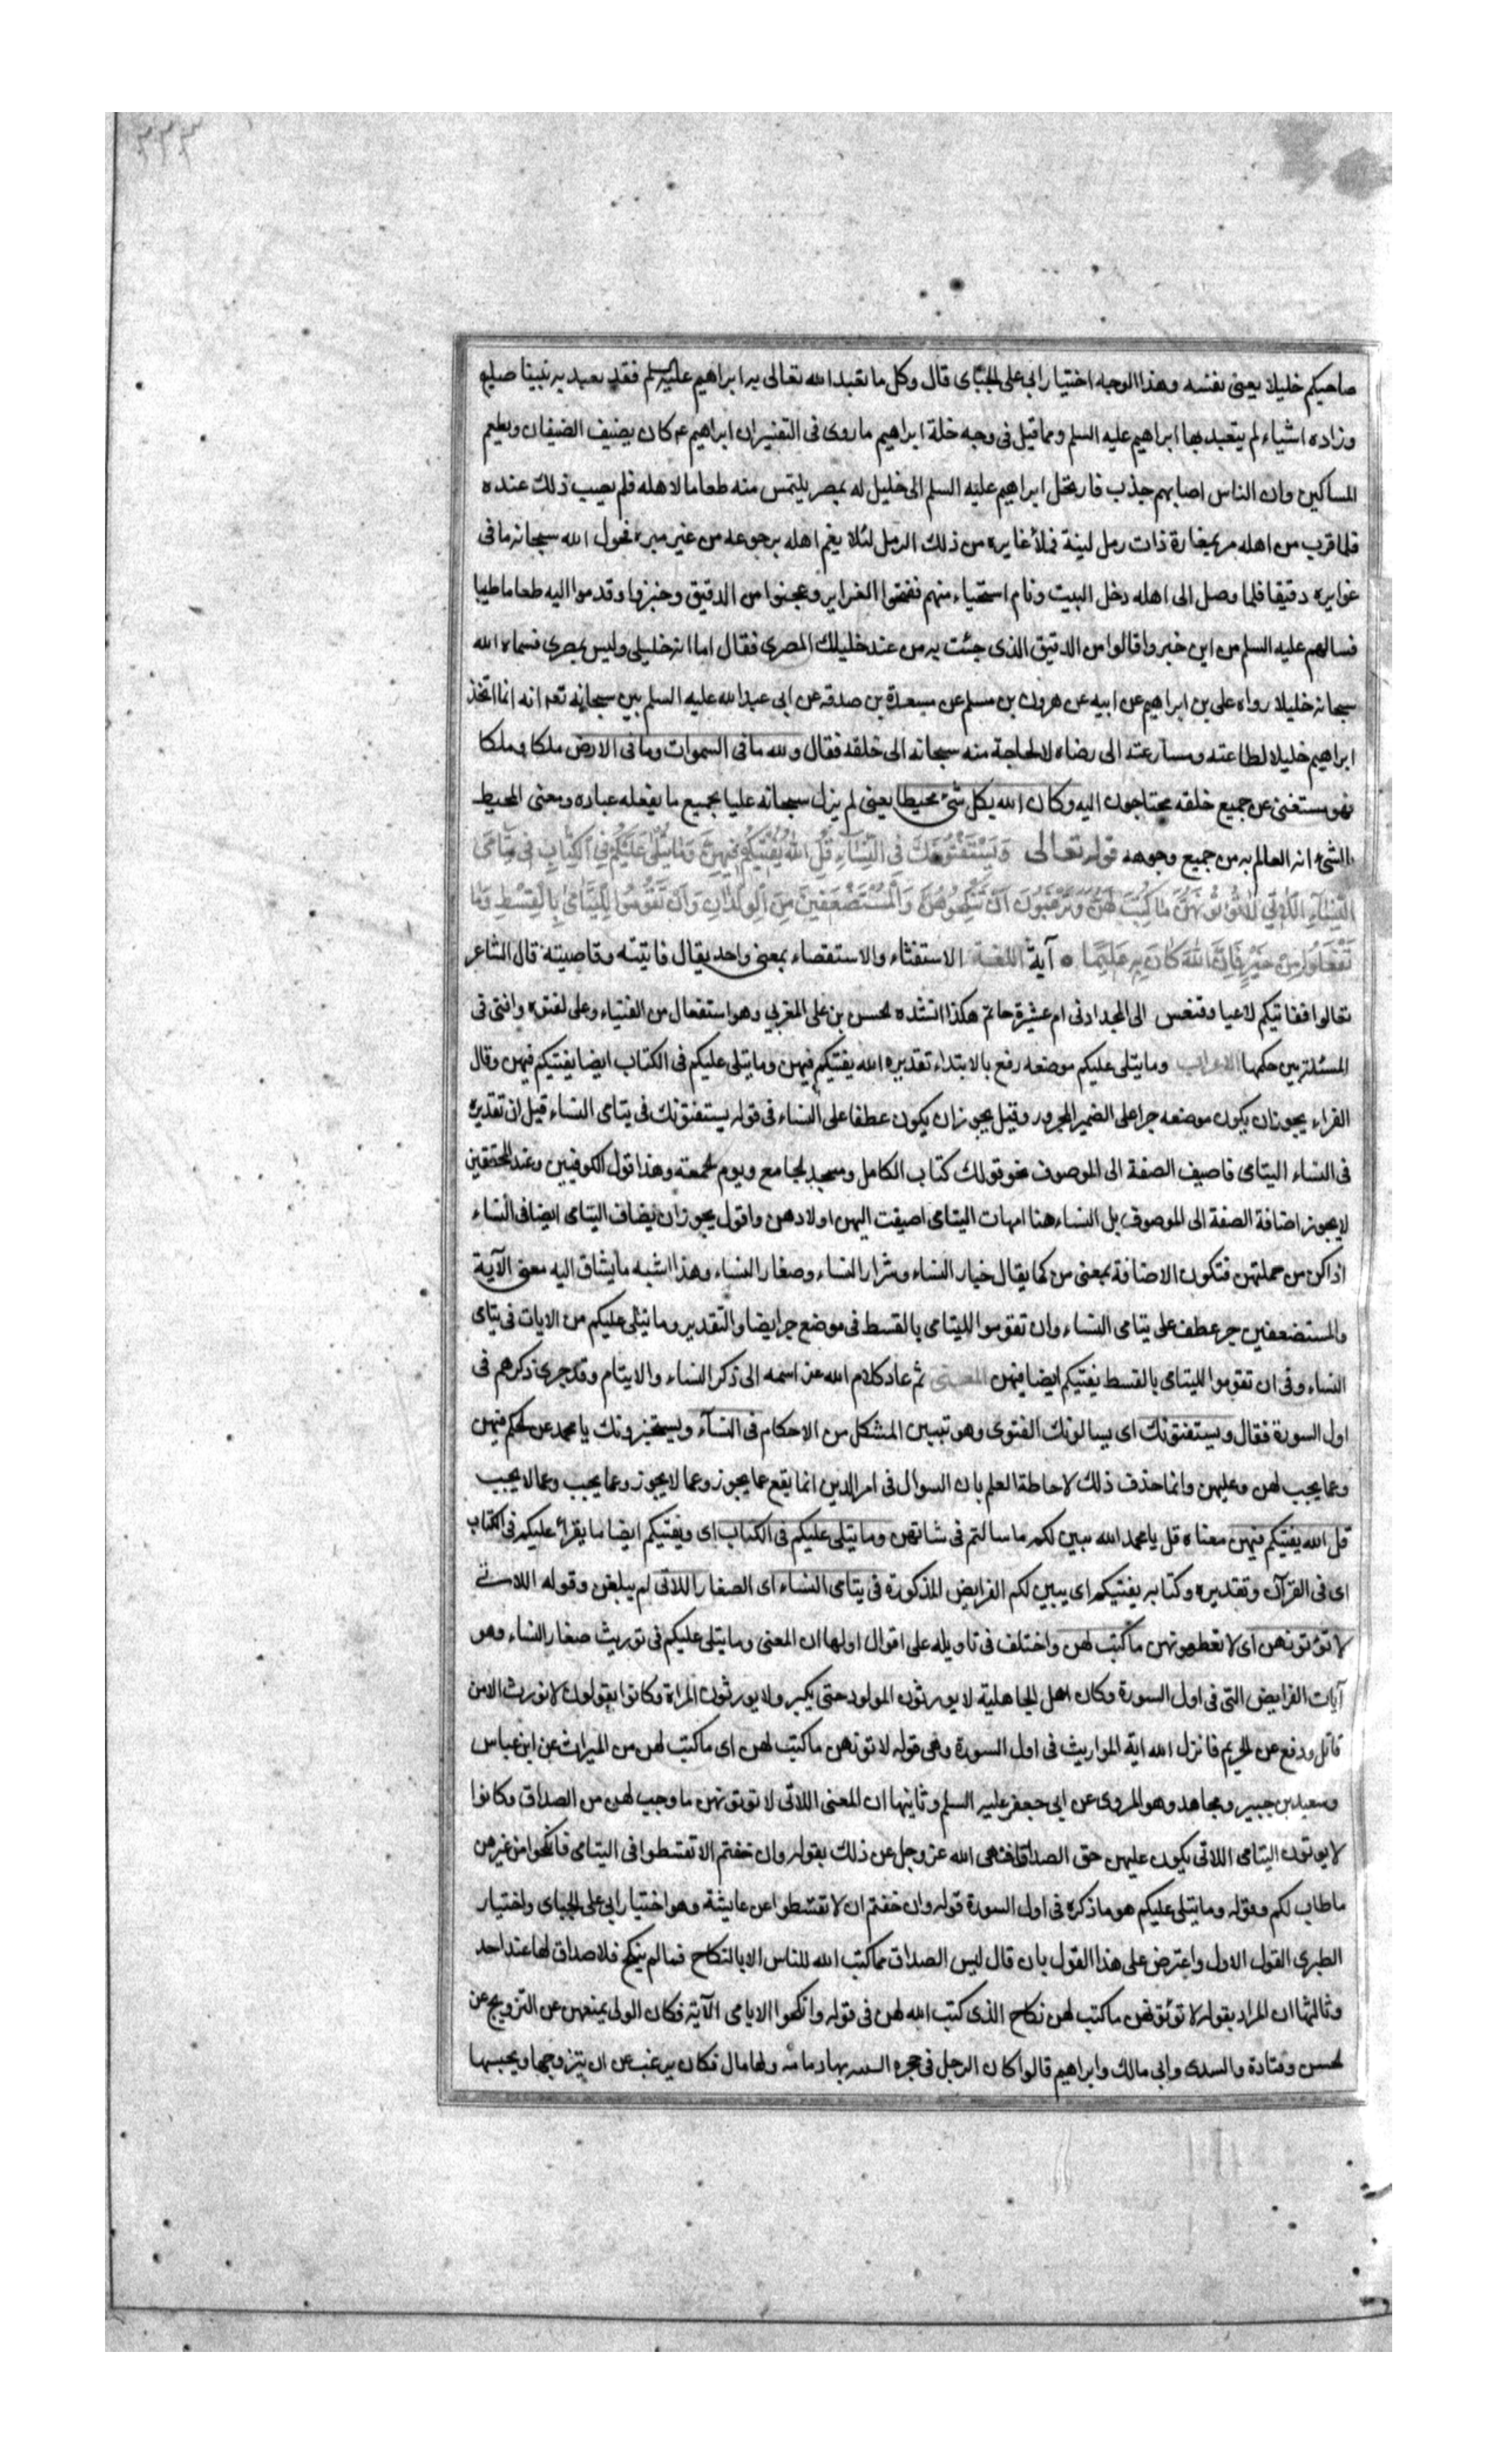 ٣٣٣
صاحبكم خليلا يعنى نفسه وهذا الوجه اختيار ابى على الجبّائى قال وكل ما تعبد الله تعالى به ابراهيم عليه السلم فقد تعبد به نبينا صلعم
وزاده اشياء لم يتعبد بها ابراهيم عليه السلم ومما قيل فى وجه خلة ابراهيم ما روى فى التفسير ان ابراهيم ع م كان يضيف الضيفان ويطعم
المساكين وان الناس اصابهم جذب فارتحل ابراهيم عليه السلم الى خليل له بمصر يلتمس منه طعاما لاهله فلم يصب ذلك عنده
فلما قرب من اهله مر بمفازة ذات رمل لينة فملأ غرايره من ذلك الرمل لئلا يغم اهله برجوعه من غير ميره فحول الله سبحانه ما فى
غرايره دقيقا فلما وصل الى اهله دخل البيت ونام استحياء منهم ففتحوا الغراير وعجنوا من الدقيق وخبزوا وقدموا اليه طعاما طيبا
فسالهم عليه السلم من اين خبزوا قالوا من الدقيق الذى جئت به من عند خليلك المصرى فقال اما انه خليلى وليس بمصرى فسماه الله
سبحانه خليلا رواه على بن ابراهيم عن ابيه عن هرون بن مسلم عن مسعدة بن صدقه عن ابى عبد الله عليه السلم بين سبحانه تعه انه انما اتخذ
ابراهيم خليلا لطاعته ومسارعته الى رضاه لا لحاجة منه سبحانه الى خلقه فقال ولله ما فى السموات وما فى الارض ملكا وملكا
فهو مستغنى عن جميع خلقه محتاجون اليه وكان الله بكل شئ محيطا يعنى لم يزل سبحانه عليا بجميع ما يفعله عباده ومعنى المحيط
بالشئ انه العالم به من جميع وجوهه قوله تعالى وَيَسْتَفْتُونَكَ فِي النِّسَآءِ قُلِ اللّٰهُ يُفْتِيكُمْ فِيهِنَّ وَمَا يُتْلٰى عَلَيْكُمْ فِي الْكِتَابِ فِي يَتَامَى
النِّسَآءِ اللَّاتِي لَا تُؤْتُونَهُنَّ مَا كُتِبَ لَهُنَّ وَتَرْغَبُونَ اَنْ تَنْكِحُوهُنَّ وَالْمُسْتَضْعَفِينَ مِنَ الْوِلْدَانِ وَاَنْ تَقُومُوا لِلْيَتَامَى بِالْقِسْطِ وَمَا
تَفْعَلُوا مِنْ خَيْرٍ فَاِنَّ اللّٰهَ كَانَ بِهِ عَلِيمًا آية اللغة الاستفتاء والاستقصاء بمعنى واحد يقال فاتيته وقاصيته قال الشاعر
تعالوا افقاتيكم لاعيا وفقعس الى المجد ادنى ام عشيرة حاتم هكذا انشده الحسن بن على المغربي وهو استفعال من الفتياء وعلى لفتوه وافتى فى
المسئلة بين حكمها الاعراب وما يتلى عليكم موضعه رفع بالابتداء تقديره الله يفتيكم فيهن وما يتلى عليكم فى الكتاب ايضا يفتيكم فيهن وقال
الفراء يجوز ان يكون موضعه جرا على الضمير المجرور وقيل يجوز ان يكون عطفا على النساء فى قوله يستفتونك فى يتامى النساء قيل ان تقديره
فى النساء اليتامى فاضيف الصفة الى الموصوف نحو قولك كتاب الكامل ومسجد الجامع ويوم الجمعة وهذا قول الكوفيين وعند المحققين
لا يجوز اضافة الصفة الى الموصوف بل النساء هنا امهات اليتامى اضيفت اليهن اولادهن واقول يجوز ان يضاف اليتامى ايضا فى النساء
اذا كن من جملتهن فتكون الاضافة بمعنى من كما يقال خيار النساء وشرار النساء وصغار النساء وهذا اشبه ما يشاق اليه معنى الآية
والمستضعفين جر عطف على يتامى النساء وان تقوموا لليتامى بالقسط فى موضع جر ايضا والتقدير وما يتلى عليكم من الايات فى يتامى
النساء وفى ان تقوموا لليتامى بالقسط يفتيكم ايضا فيهن المعنى ثم عاد كلام الله عز اسمه الى ذكر النساء والايتام وقد جرى ذكرهم فى
اول السورة فقال ويستفتونك اى يسالونك الفتوى وهو تبيين المشكل من الاحكام فى النسآء ويستخبرونك يا محمد عن الحكم فيهن
وعما يجب لهن وعليهن وانما حذف ذلك لاحاطة العلم بان السوال فى امر الدين انما يقع عما يجوز وعما لا يجوز وعما يجب وعما لا يجب
قل الله يفتيكم فيهن معناه قل يا محمد الله يبين لكم ما سالتم فى شانهن وما يتلى عليكم فى الكتاب اى ويفتيكم ايضا ما يقرأ عليكم فى الكتاب
اى فى القرآن وتقديره وكتابه يفتيكم اى يبين لكم الفرايض المذكورة فى يتامى النساء اى الصغار اللاتى لم يبلغن وقوله اللاتى
لا تؤتونهن اى لا تعطونهن ما كتب لهن واختلف فى تاويله على اقوال اولها ان المعنى وما يتلى عليكم فى توريث صغار النساء وهو
آيات الفرايض التى فى اول السورة وكان اهل الجاهلية لا يورثون المولود حتى يكبر ولا يورثون المراة وكانوا يقولون لا نورث الا من
قاتل ودفع عن الحريم فانزل الله اية المواريث فى اول السورة وهى قوله لا تؤتونهن ما كتب لهن اى ما كتب لهن من الميراث عن ابن عباس
وسعيد بن جبير ومجاهد وهو المروى عن ابى جعفر عليه السلم وثانيها ان المعنى اللاتى لا توتونهن ما وجب لهن من الصداق وكانوا
لا يوتون اليتامى اللاتى يكون عليهن حق الصداق فنهى الله عز وجل عن ذلك بقوله وان خفتم الا تقسطوا فى اليتامى فانكحوا من غيرهن
ما طاب لكم وقوله وما يتلى عليكم هو ما ذكره فى اول السورة قوله وان خفتم ان لا تقسطوا عن عايشة وهو اختيار ابى على الجبائى واختيار
الطبرى القول الاول واعترض على هذا القول بان قال ليس الصداق مما كتب الله للناس الا بالنكاح فما لم ينكح فلا صداق لها عند احد
وثالثها ان المراد بقوله لا تؤتونهن ما كتب لهن نكاح الذى كتب الله لهن فى قوله وانكحوا الايامى الآية فكان الولى يمنعهن عن التزويج عن
الحسن وقتادة والسدى وابى مالك وابراهيم قالوا كان الرجل فى حجره اليتيمة بها دمامة ولها مال فكان يرغب عن ان يتزوجها ويحبسها